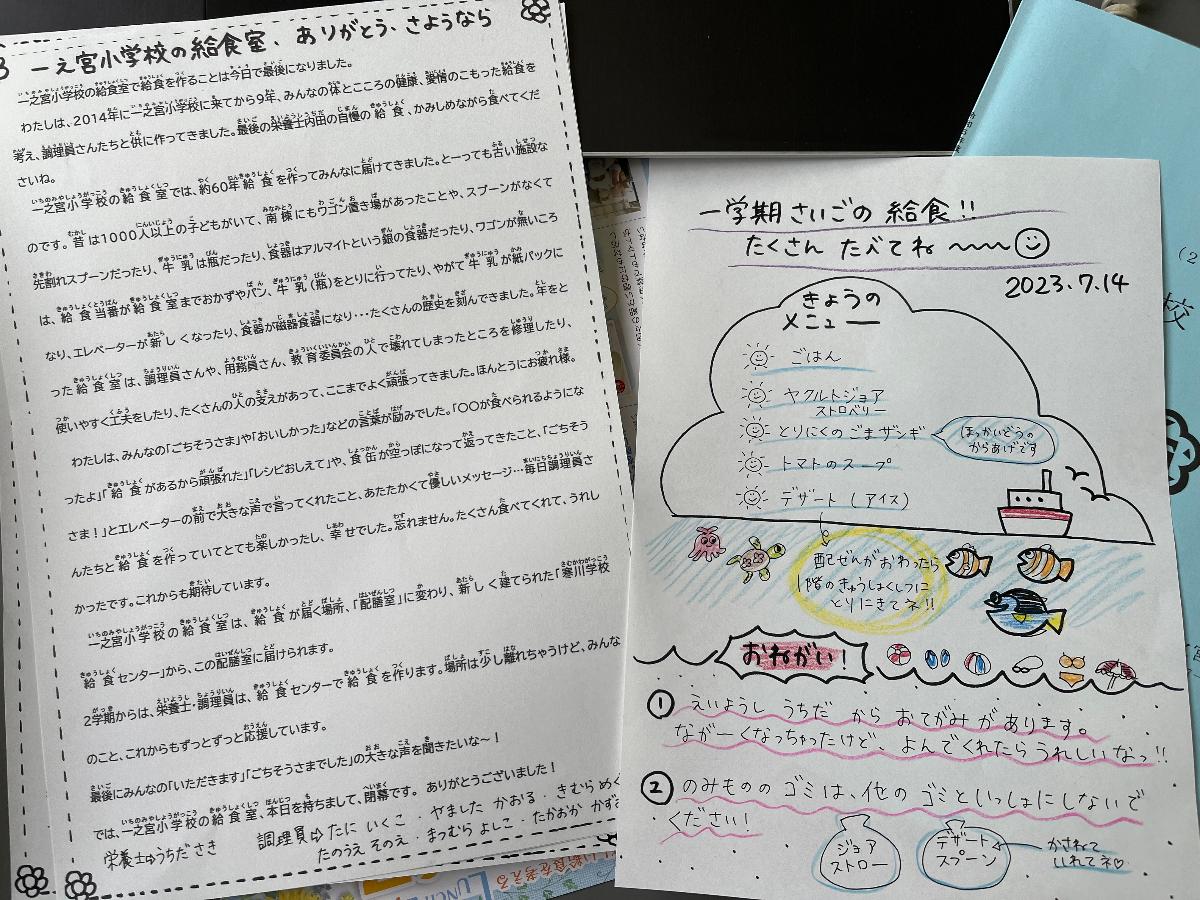 一之宮小学校の給食室、ありがとう、さようなら
一之宮小学校の給食室で給食を作ることは今日で最後になりました。
わたしは、2014年に一之宮小学校に来てから9年、みんなの体とこころの健康、愛情のこもった給食を
考え、調理員さんたちと供に作ってきました。最後の栄養士内田の自慢の給食、かみしめながら食べてくだ
さいね。
一之宮小学校の給食室では、約60年給食を作ってみんなに届けてきました。とーっても古い施設な
のです。昔は1000人以上の子どもがいて、南棟にもワゴン置き場があったことや、スプーンがなくて
先割れスプーンだったり、牛乳は瓶だったり、食器はアルマイトという銀の食器だったり、ワゴンが無いころ
は、給食当番が給食室までおかずやパン、牛乳(瓶)をとりに行ってたり、やがて牛乳が紙パックに
なり、エレベーターが新しくなったり、食器が磁器食器になり・・・たくさんの歴史を刻んできました。年をと
った給食室は、調理員さんや、用務員さん、教育委員会の人で壊れてしまったところを修理したり、
使いやすく工夫をしたり、たくさんの人の支えがあって、ここまでよく頑張ってきました。ほんとうにお疲れ様。
わたしは、みんなの「ごちそうさま」や「おいしかった」などの言葉が励みでした。「〇〇が食べられるようにな
ったよ」「給食があるから頑張れた」「レシピおしえて」や、食缶が空っぽになって返ってきたこと、「ごちそう
さま!」とエレベーターの前で大きな声で言ってくれたこと、あたたかくて優しいメッセージ…毎日調理員さ
んたちと給食を作っていてとても楽しかったし、幸せでした。忘れません。たくさん食べてくれて、うれし
かったです。これからも期待しています。
一之宮小学校の給食室は、給食が届く場所、「配膳室」に変わり、新しく建てられた「寒川学校
給食センター」から、この配膳室に届けられます。
2学期からは、栄養士・調理員は、給食センターで給食を作ります。場所は少し離れちゃうけど、みんな
のこと、これからもずっとずっと応援しています。
最後にみんなの「いただきます」「ごちそうさまでした」の大きな声を聞きたいな~!
では、一之宮小学校の給食室、本日を持ちまして、閉幕です。ありがとうございました!
栄養士⇨うちだ さき
調理員⇨たに いくこ・やました かおる・きむら めぐ
たのうえ そのえ・まつむら よしこ・たかおか かずお
一学期さいごの給食!!
たくさん たべてね~~~
2023.7.14
きょうの
メニュー
ごはん
ヤクルトジョア
ストロベリー
とりにくのごまザンギ
ほっかいどうの
からあげです
トマトのスープ
デザート(アイス)
配ぜんがおわったら
1階のきゅうしょくしつに
とりにきてネ!!
おねがい!
① えいようし うちだ から おてがみ が あります。
ながーくなっちゃったけど、よんでくれたら うれしいなっ!!
② のみものの ゴミは、他の ゴミと いっしょに しないで
ください!
ジョア
ストロー
デザート
スプーン
かさねて
いれてネ♡
校